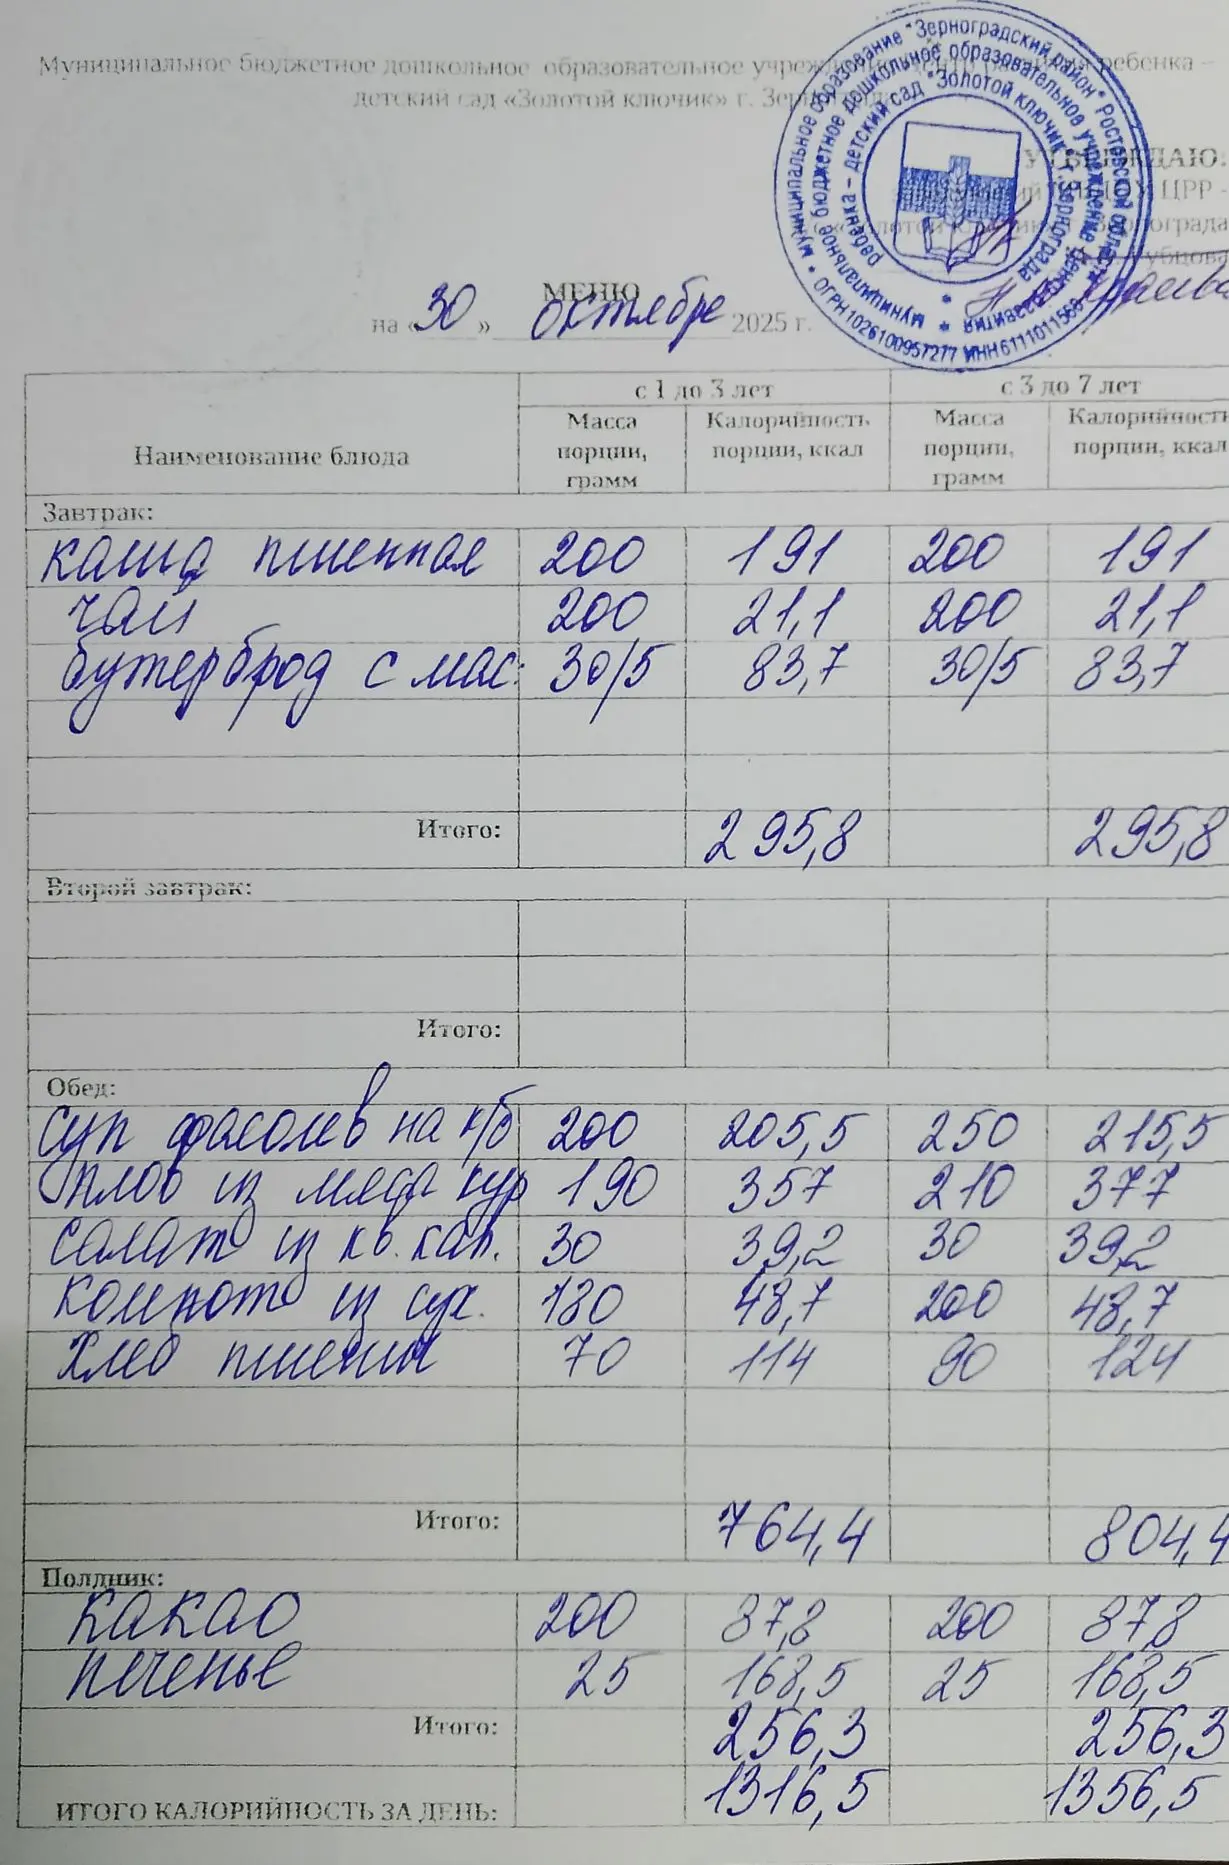 Муниципальное бюджетное дошкольное образовательное учреждение центр развития ребенка –
детский сад «Золотой ключик» г. Зернограда
муниципальное образование "Зерноградский район" Ростовской области
ОГРН 1026100957277 ИНН 611101156
муниципальное бюджетное дошкольное образовательное учреждение центр развития
ребенка – детский сад "Золотой ключик" г. Зернограда
УТВЕРЖДАЮ:
ЦРР -
«Золотой ключик» г. Зернограда
МЕНЮ
на « 30 » октября 2025 г.
Наименование блюда с 1 до 3 лет с 3 до 7 лет
Масса порции, грамм Калорийность порции, ккал Масса порции, грамм Калорийность порции, ккал
Завтрак:
каша пшенная 200 191 200 191
чай 200 21,1 200 21,1
бутерброд с мас: 30/5 83,7 30/5 83,7
Итого: 295,8 295,8
Второй завтрак:
Итого:
Обед:
суп фасолев на к/б 200 205,5 250 215,5
плов из мяса кур 190 357 210 377
салат из кв. кап. 30 39,2 30 39,2
компот из сух. 180 48,7 200 48,7
хлеб пшенич 70 114 90 124
Итого: 764,4 804,4
Полдник:
какао 200 87,8 200 87,8
печенье 25 168,5 25 168,5
Итого: 256,3 256,3
ИТОГО КАЛОРИЙНОСТЬ ЗА ДЕНЬ: 1316,5 1356,5